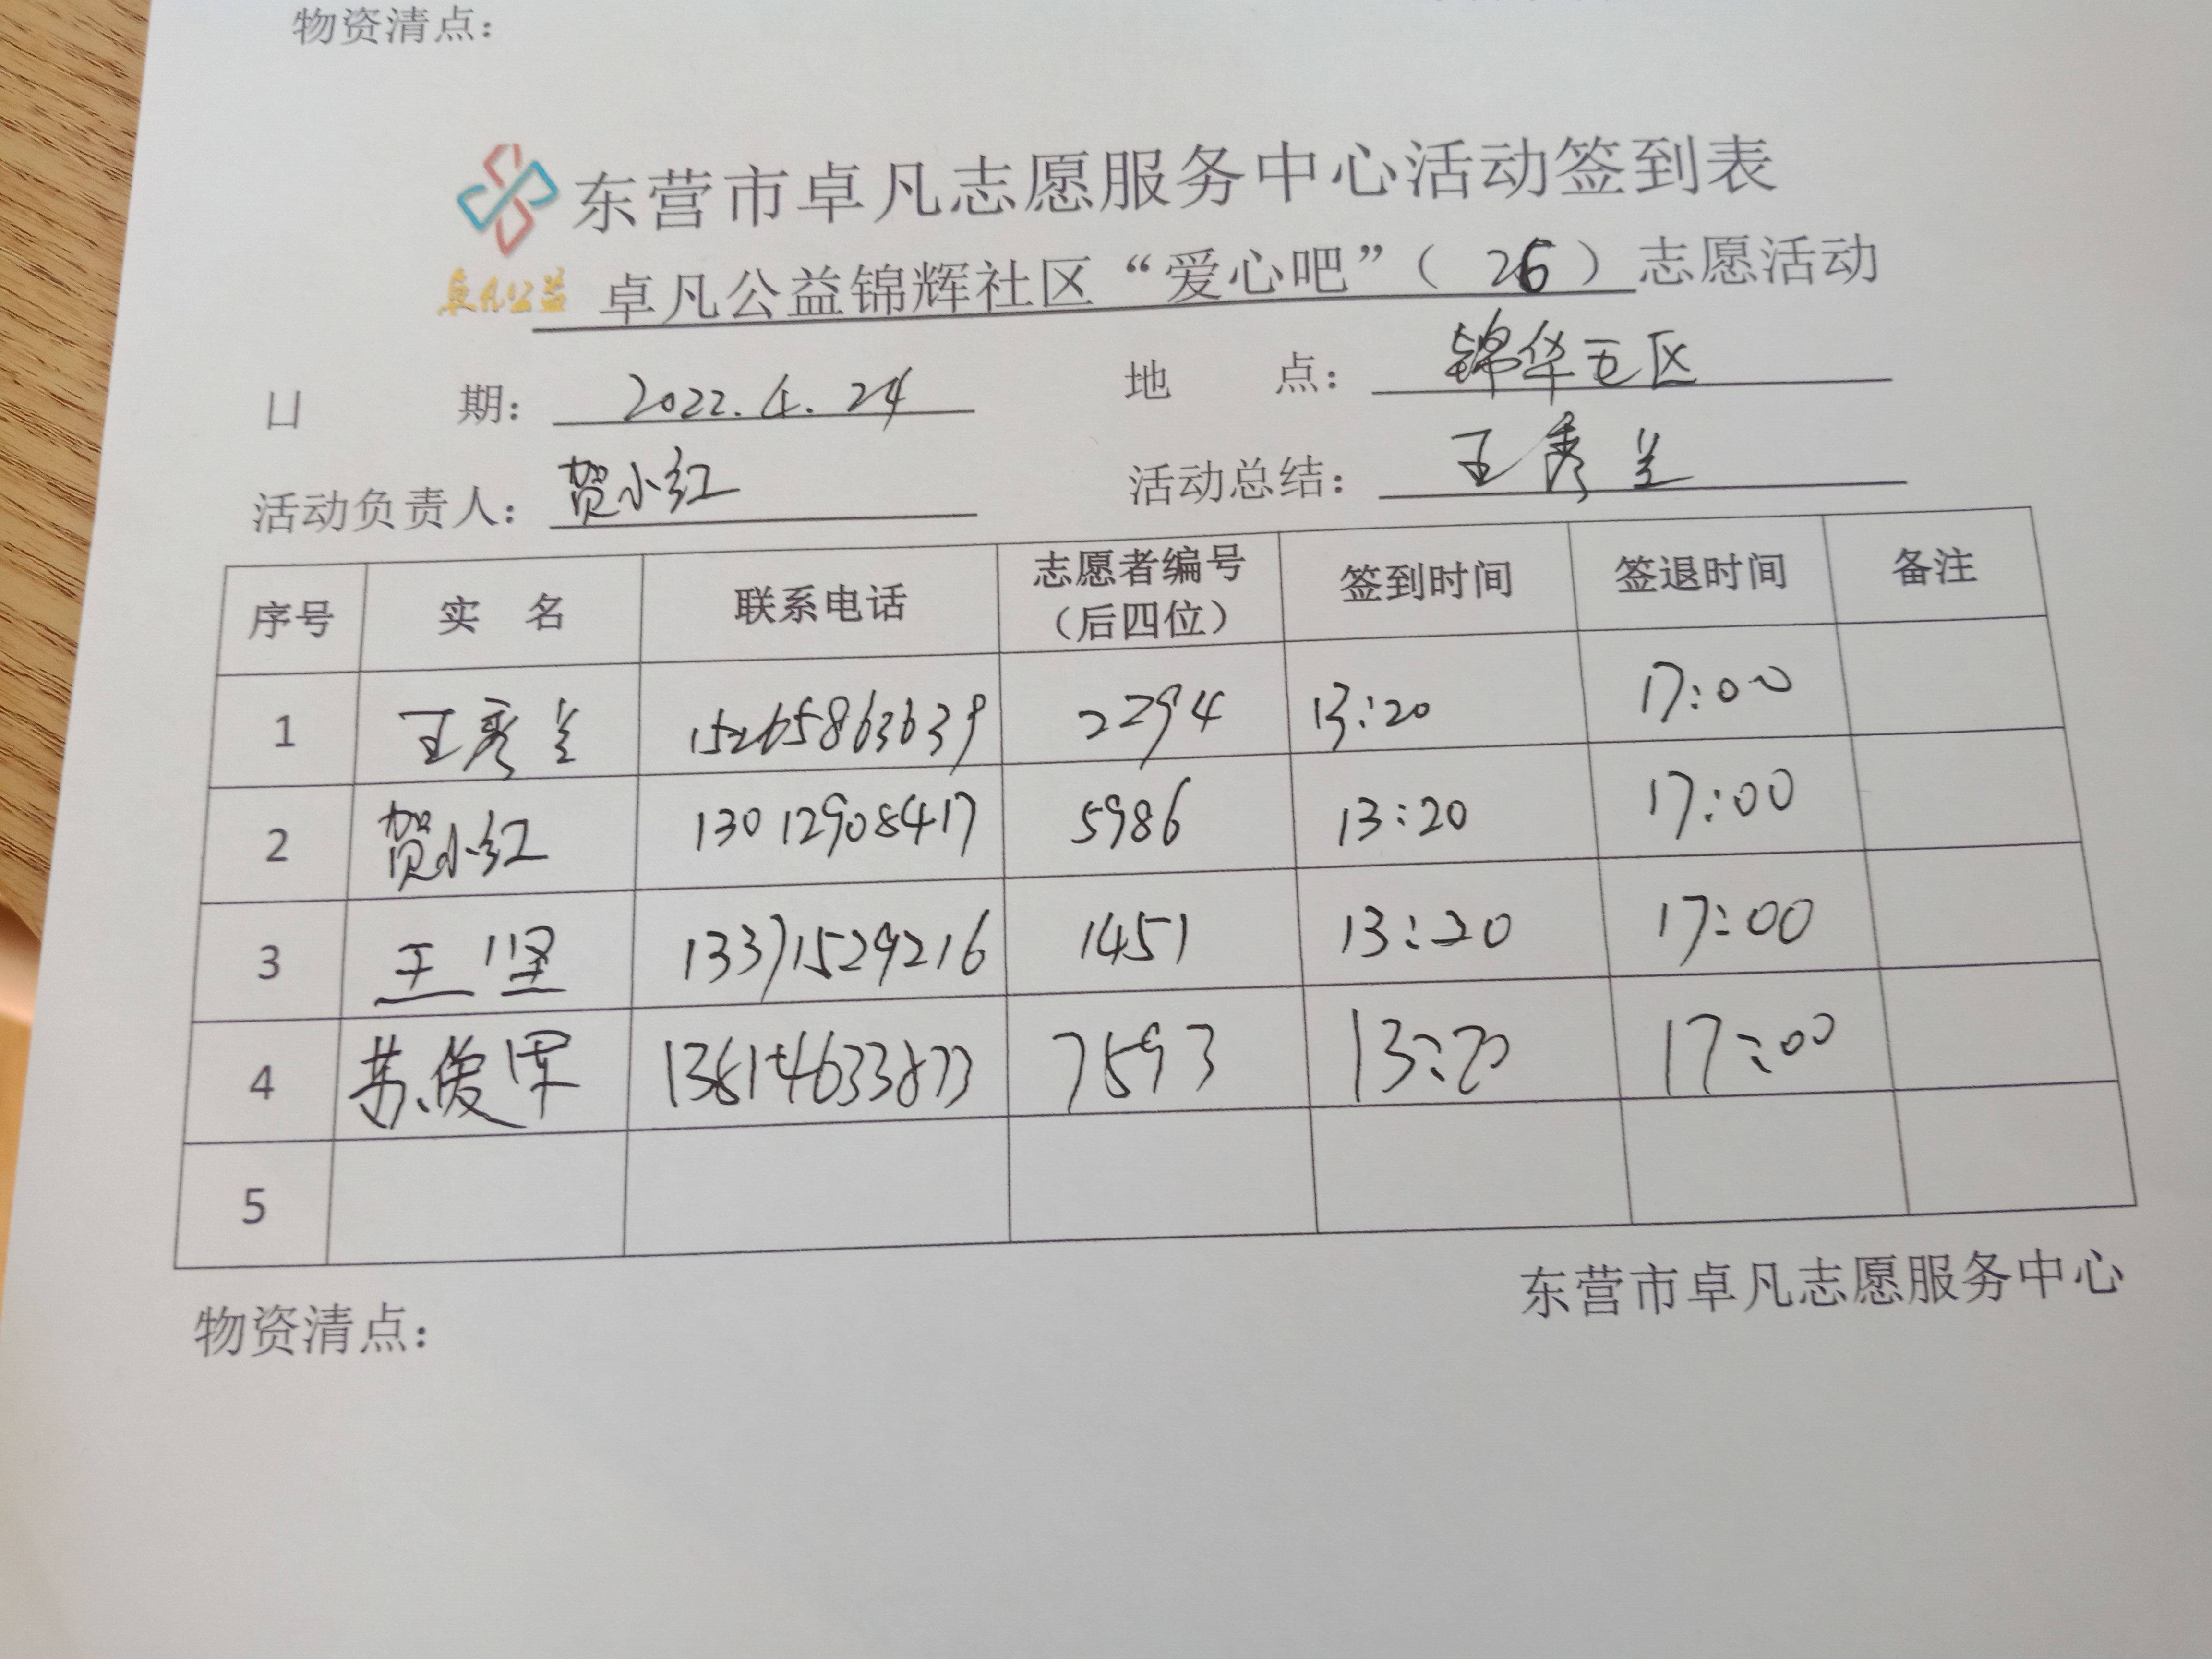 物资清点：
东营市卓凡志愿服务中心活动签到表
卓凡公益 卓凡公益锦辉社区“爱心吧”（ 26 ）志愿活动
日 期： 2022.4.24 地 点： 锦华五区
活动负责人： 贺小红 活动总结： 王秀兰
序号 实 名 联系电话 志愿者编号（后四位） 签到时间 签退时间 备注
1 王秀兰 15265863639 2294 13:20 17:00
2 贺小红 13012908417 5986 13:20 17:00
3 王坚 13371529216 1451 13:20 17:00
4 苏俊军 7593 13:20 17:00
5
东营市卓凡志愿服务中心
物资清点：